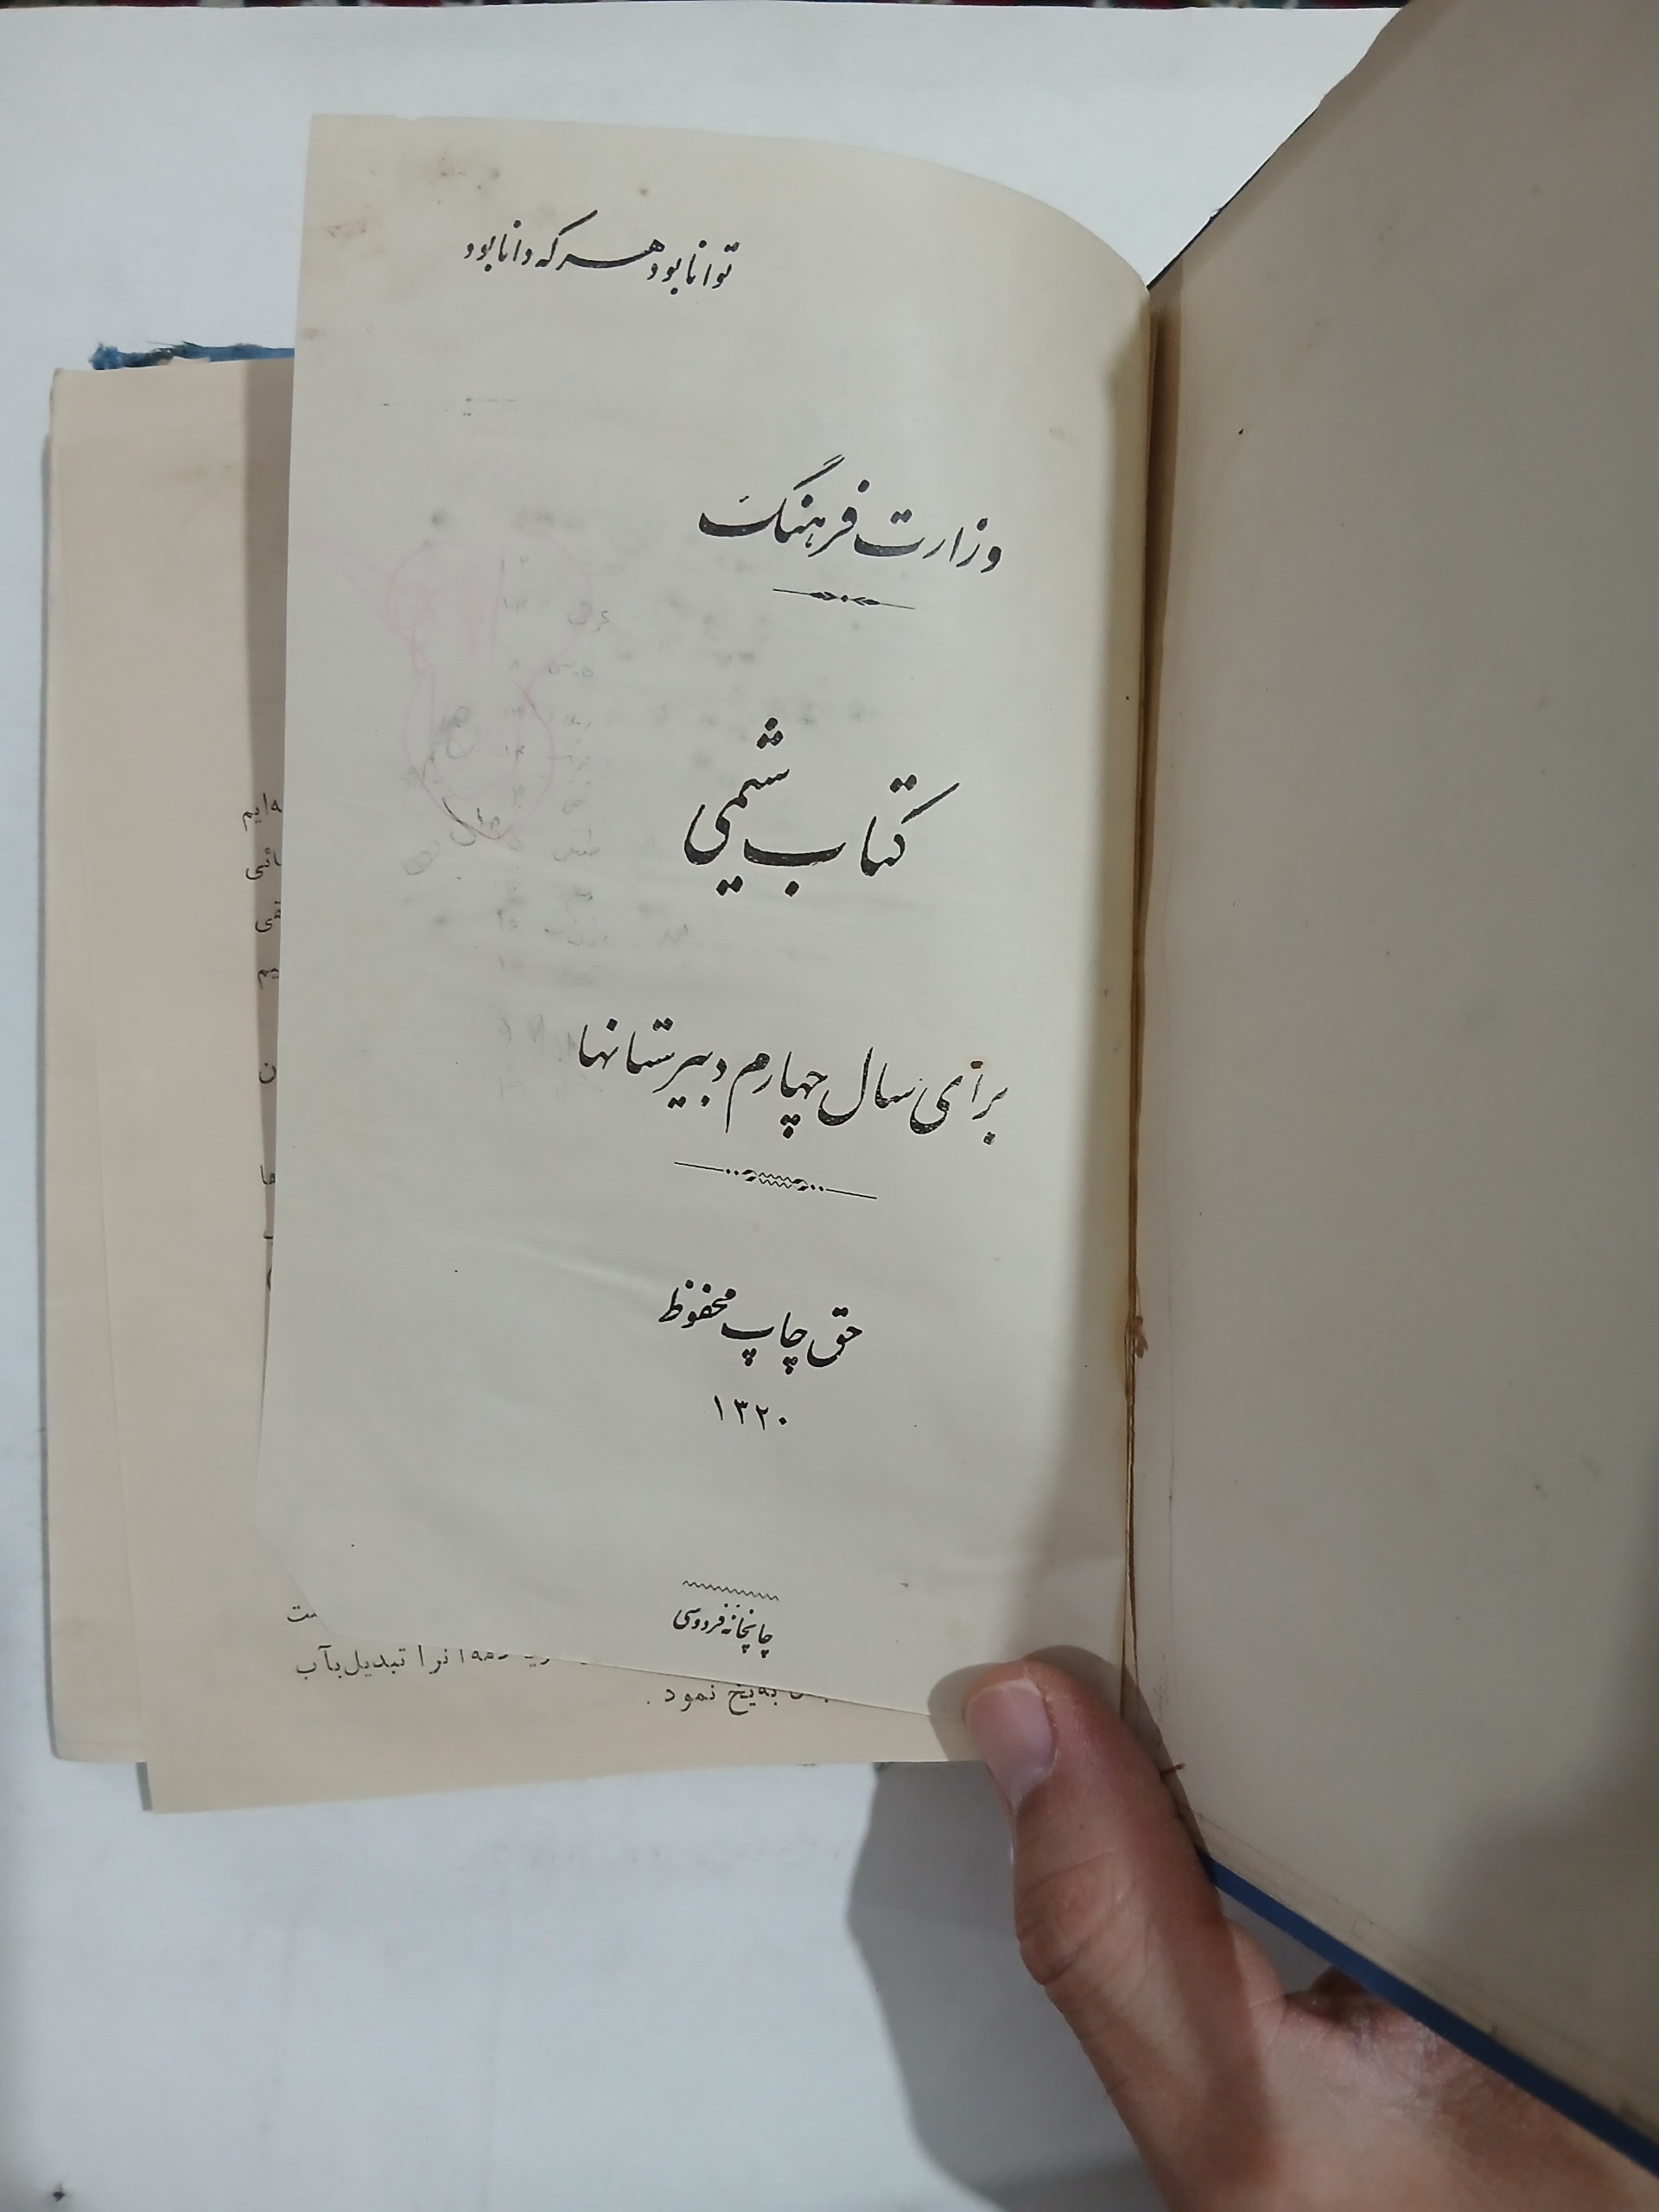 توانا بود هر که دانا بود
وزارت فرهنگ
کتاب شیمی
برای سال چهارم دبیرستانها
حق چاپ محفوظ
۱۳۲۰
چاپخانه فردوسی
نرا تبدیل بآب
به یخ نمود .